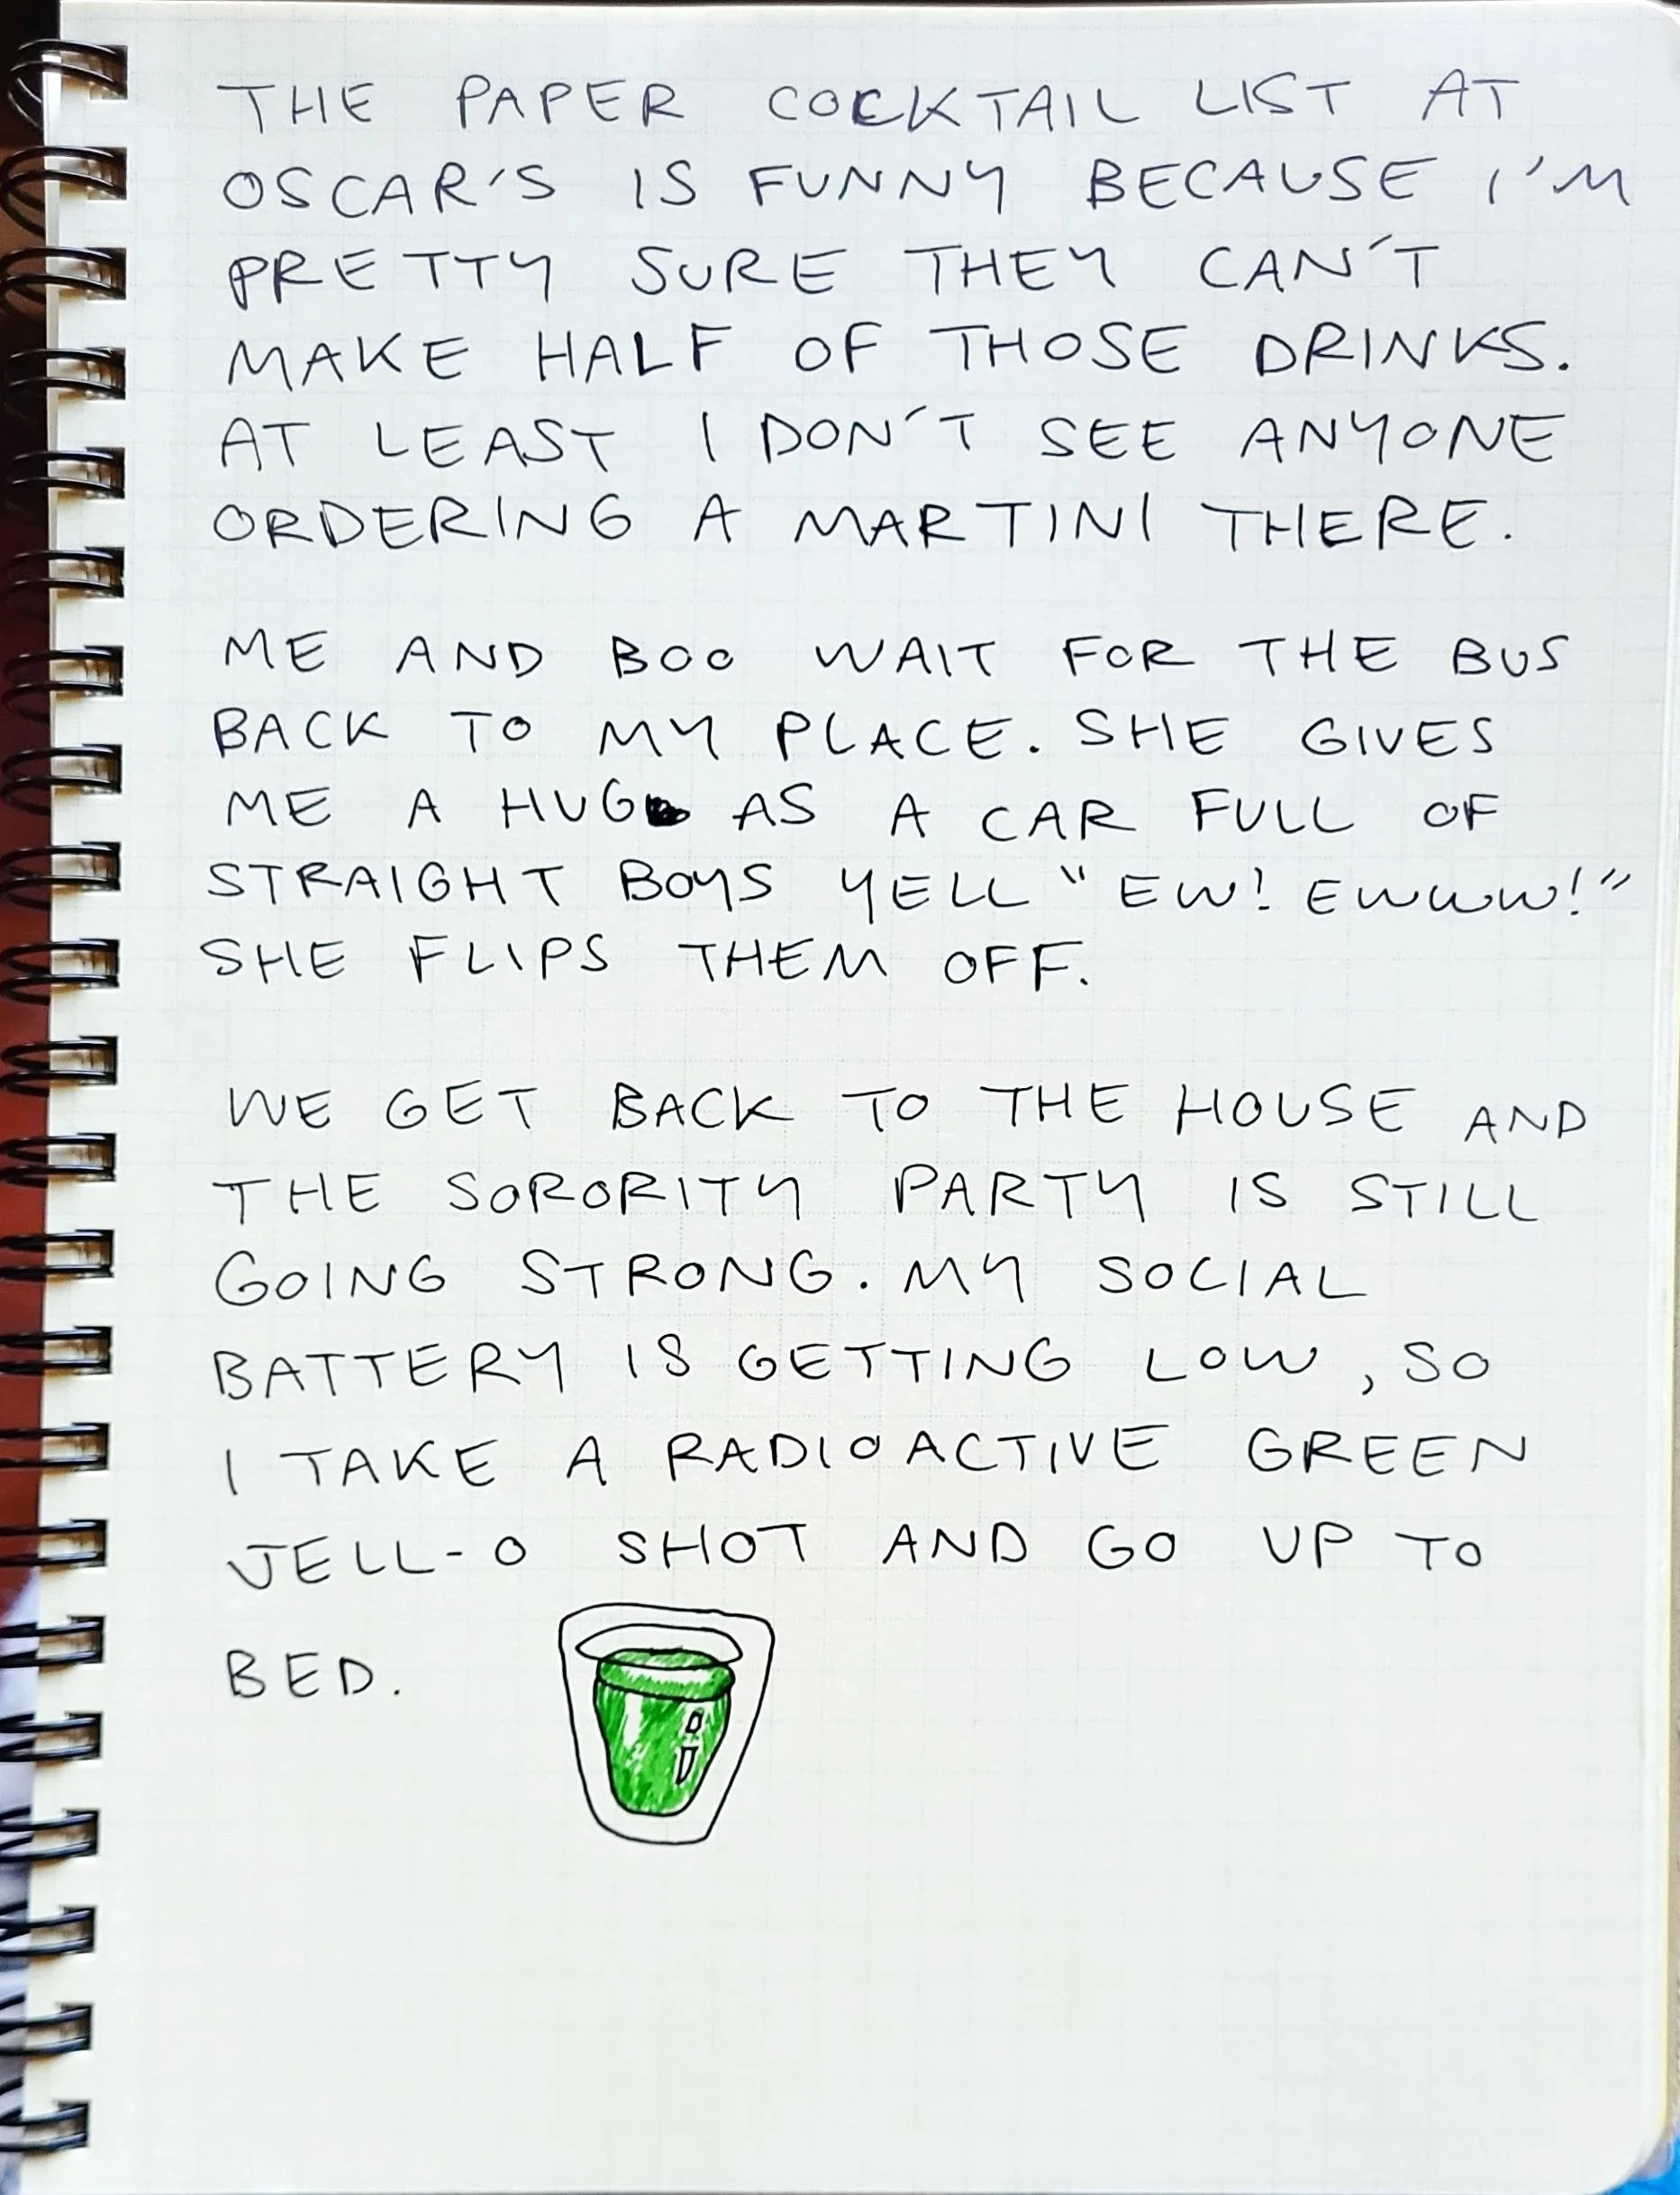 THE PAPER COCKTAIL LIST AT
OSCAR'S IS FUNNY BECAUSE I'M
PRETTY SURE THEY CAN'T
MAKE HALF OF THOSE DRINKS.
AT LEAST I DON'T SEE ANYONE
ORDERING A MARTINI THERE.
ME AND BOO WAIT FOR THE BUS
BACK TO MY PLACE. SHE GIVES
ME A HUG AS A CAR FULL OF
STRAIGHT BOYS YELL "EW! EWWW!"
SHE FLIPS THEM OFF.
WE GET BACK TO THE HOUSE AND
THE SORORITY PARTY IS STILL
GOING STRONG. MY SOCIAL
BATTERY IS GETTING LOW, SO
I TAKE A RADIOACTIVE GREEN
JELL-O SHOT AND GO UP TO
BED.